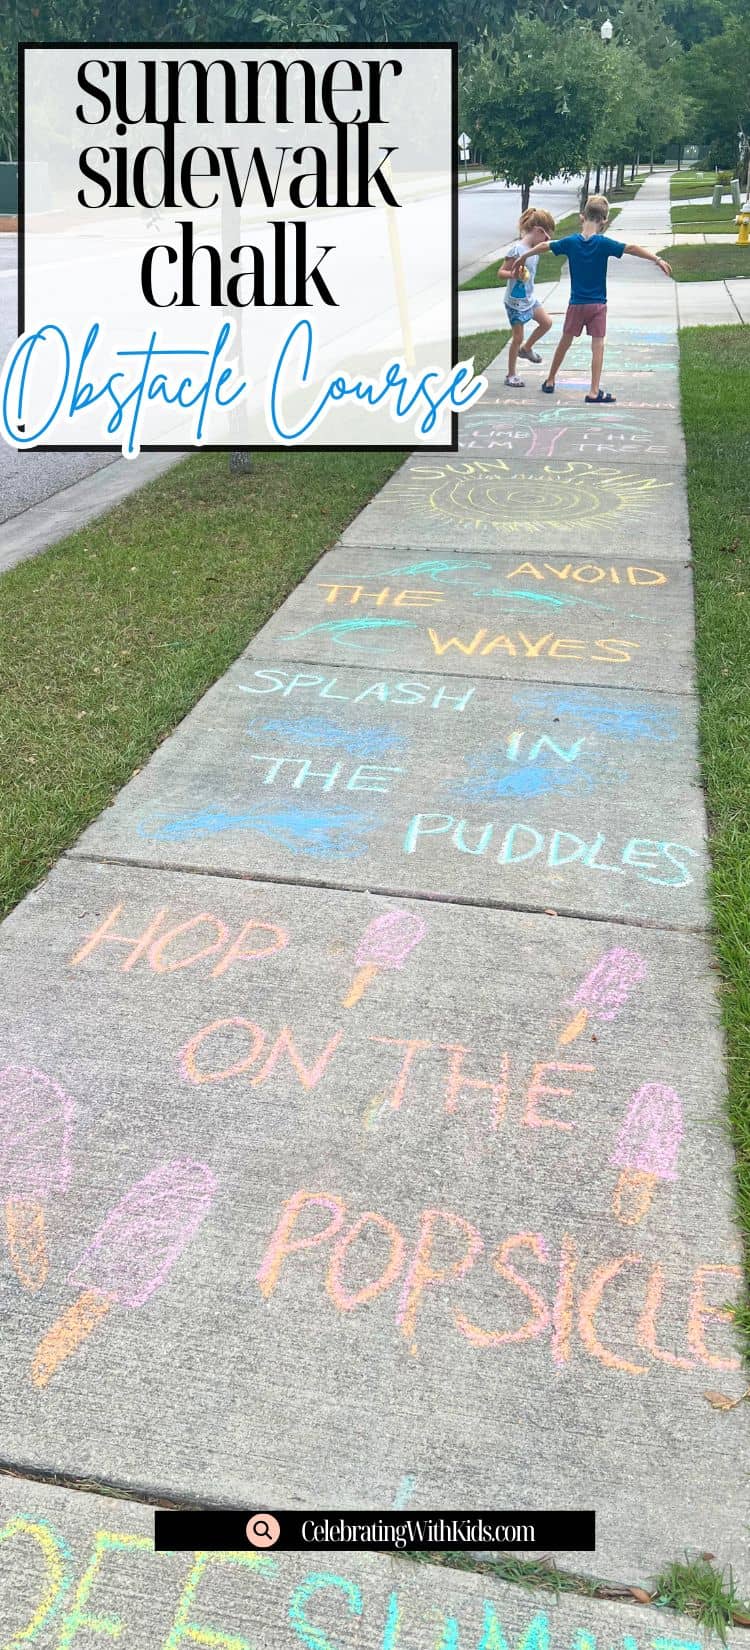 summer
sidewalk
chalk
Obstacle Course
CLIMB THE
PALM TREE
SUN SPIN
AVOID
THE
WAVES
SPLASH
IN
THE
PUDDLES
HOP
ON THE
POPSICLE
CelebratingWithKids.com
OFF SUMM